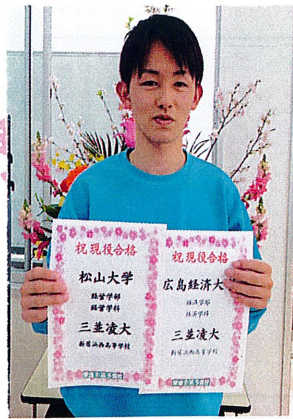 祝現役合格
松山大学
経営学部
経営学科
三並凌大
新居浜西高等学校
祝現役合格
広島経済大
経済学部
経済学科
三並凌大
新居浜西高等学校